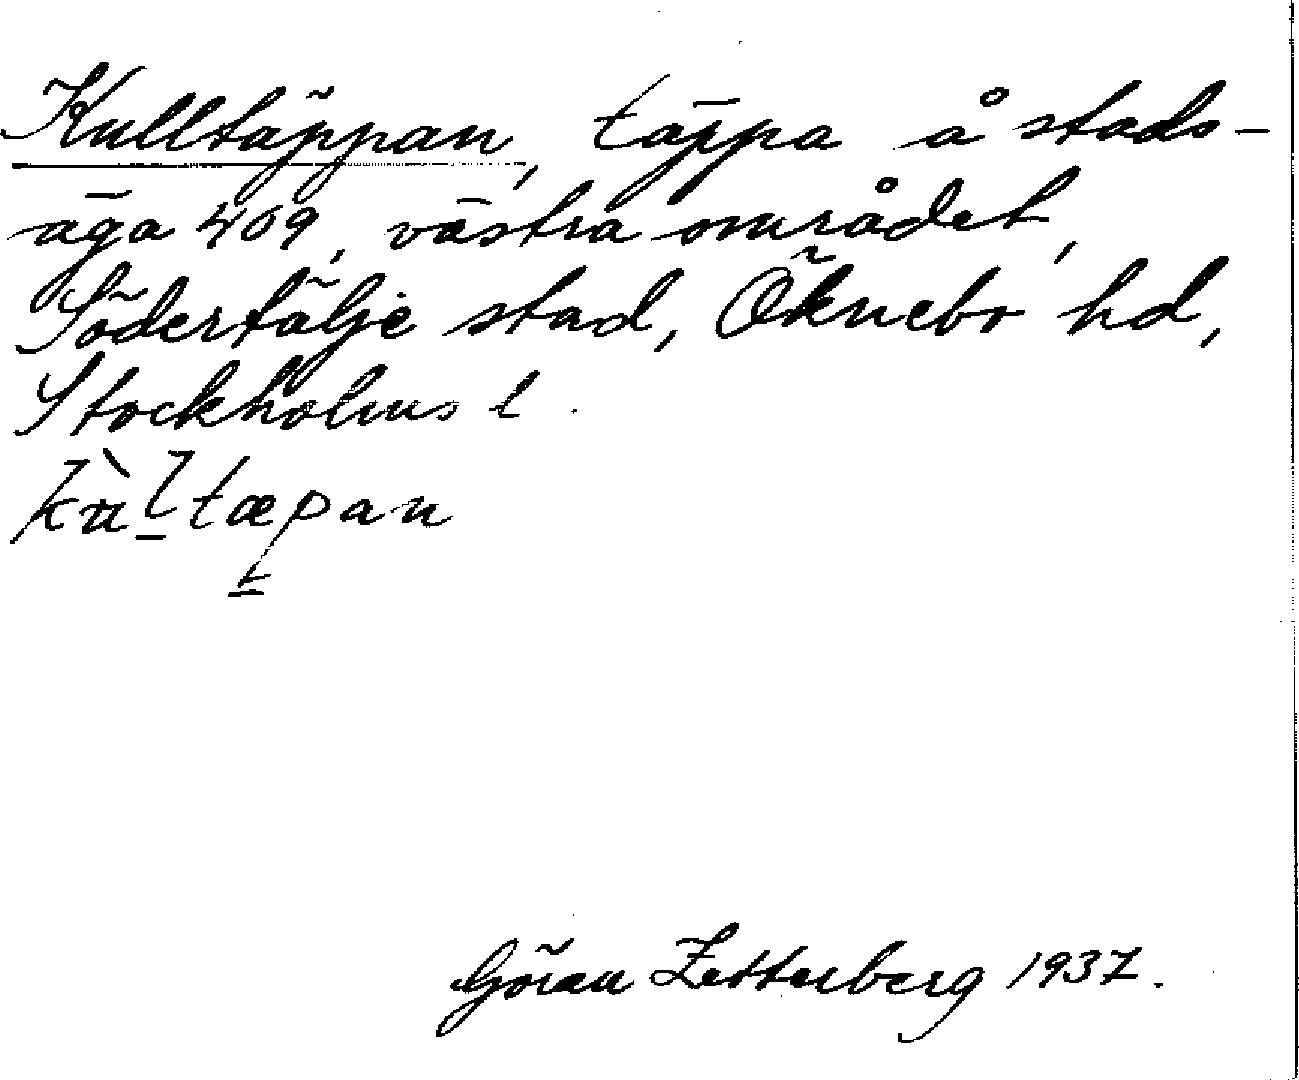 Kulltäppan, täppa å stads-
äga 409, västra området,
Södertälje stad, Öknebo hd,
Stockholms l.
kùltæpan
t
Göran Zetterberg 1937.